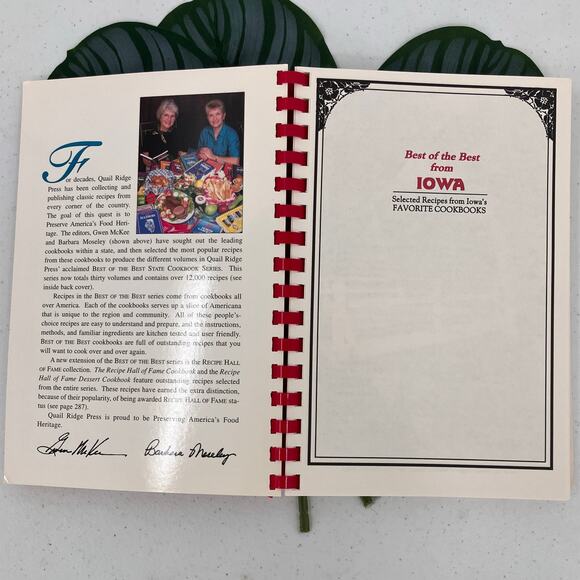 For decades, Quail Ridge
Press has been collecting and
publishing classic recipes from
every corner of the country.
The goal of this quest is to
Preserve America's Food Heri-
tage. The editors, Gwen McKee
and Barbara Moseley (shown above) have sought out the leading
cookbooks within a state, and then selected the most popular recipes
from these cookbooks to produce the different volumes in Quail Ridge
Press' acclaimed BEST OF THE BEST STATE COOKBOOK SERIES. This
series now totals thirty volumes and contains over 12,000 recipes (see
inside back cover).
Recipes in the BEST OF THE BEST series come from cookbooks all
over America. Each of the cookbooks serves up a slice of Americana
that is unique to the region and community. All of these people's-
choice recipes are easy to understand and prepare, and the instructions,
methods, and familiar ingredients are kitchen tested and user friendly.
BEST OF THE BEST cookbooks are full of outstanding recipes that you
will want to cook over and over again.
A new extension of the BEST OF THE BEST series is the RECIPE HALL
OF FAME collection. The Recipe Hall of Fame Cookbook and the Recipe
Hall of Fame Dessert Cookbook feature outstanding recipes selected
from the entire series. These recipes have earned the extra distinction,
because of their popularity, of being awarded RECIPE HALL OF FAME sta-
tus (see page 287).
Quail Ridge Press is proud to be Preserving America's Food
Heritage.
Gwen McKee Barbara Moseley
Best of the Best
from
IOWA
Selected Recipes from Iowa's
FAVORITE COOKBOOKS